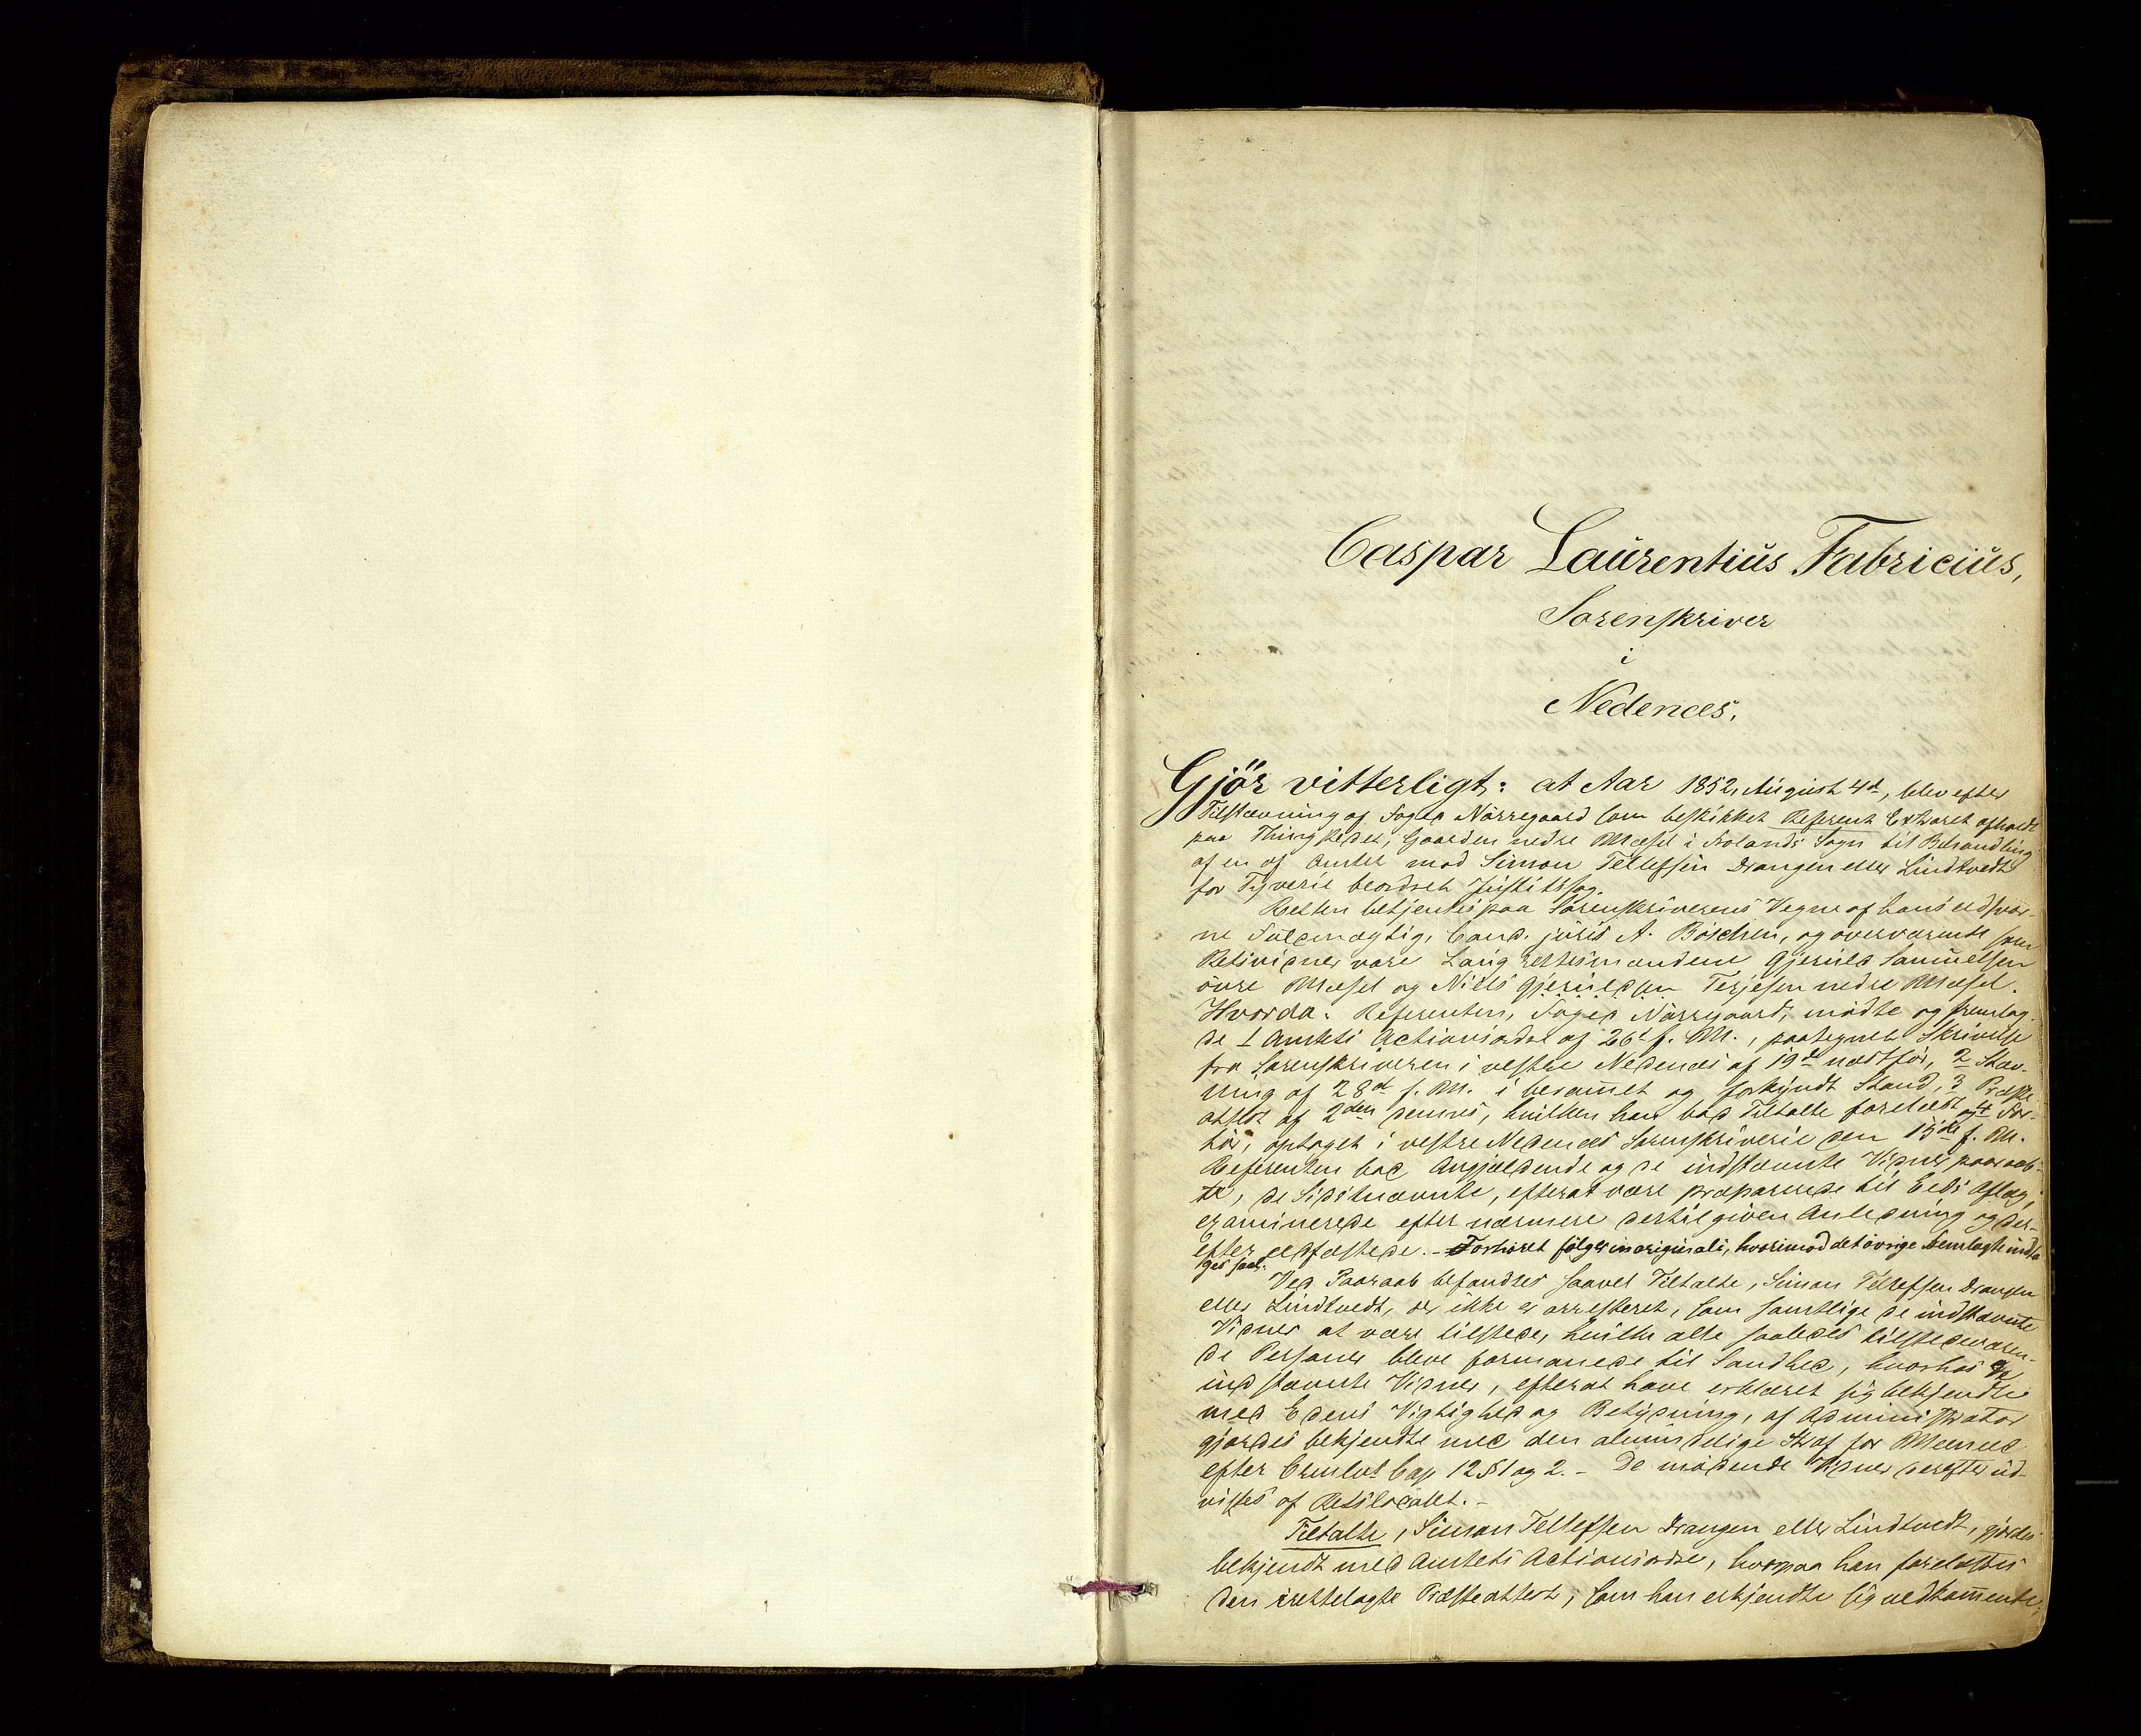 Caspar Laurentius Fabricius,
Sorenskriver
i
Nedenæs,
Gjör vitterligt: at Aar 1852, August 4d, blev efter
Tilstævning af Foged Nørregaard som beskikket Referent Extraret afholdt
paa Thingstedet, Gaarden nedre Mæsel i Frolands Sogn til Behandling
af en af Amtet mod Simon Tellefsen Drangen eller Lindtvedt
for Tyverie beordret Justitssag.
Retten betjentes paa Sorenskriverens Vegne af hans edsvor-
ne Fuldmægtig, Cand. juris A. Böschen, og overværende som
Retsvidner vare Laugrettesmændene Gjeruld Samuelsen
övre Mæsel og Niels Gjeruldsen Terjesen nedre Mæsel.
Hvorda: Referenten, Foged Nørregaard, mödte og fremlag-
de 1 Amtets Actionsordre af 26d f. M., paategnet Skrivelse
fra Sorenskriveren i vestre Nedenæs af 19d næstfor, 2 Stæv-
ning af 28d f. M. i berammet og forkyndt Stand, 3 Præste
attest af 2den dennes, hvilken han bad Tiltalte forelæst og 4 For-
hör, optaget i vestre Nedenæs Sorenskriverie den 15de f. M.
Referenten bad Angjældende og de indstævnte Vidner paaraab-
te, de Sidstnævnte, efterat være præparerede til Eeds Aflæg,
examinerede efter nærmere dertil given Anledning og der-
efter eedfæstede. - Forhöret fölger in originali, hvorimod det övrige Fremlagte indta-
ges saal.
Ved Paaraab befandtes saavel Tiltalte, Simon Tellefsen Drangen
eller Lindtvedt, der ikke er arresteret, som samtlige de indstævnte
Vidner at være tilstede, hvilke alle saaledes tilstedeværen-
de Personer bleve formanede til Sandhed, hvorhos de
indstævnte Vidner, efterat have erklæret sig bekjendte
med Edens Vigtighed og Betydning, af Administrator
gjordes bekjendte med den almindelige Straf for Meeneed
efter Crmlvt Cap 12 § 1 og 2. - De mödende Vidner derefter ud-
vistes af Retslocalet. -
Tiltalte, Simon Tellefsen Drangen eller Lindtvedt, gjordes
bekjendt med Amtets Actionsordre, hvorpaa han forelæstes
den irettelagte Præsteattest, som han erkjendte sig vedkommende,